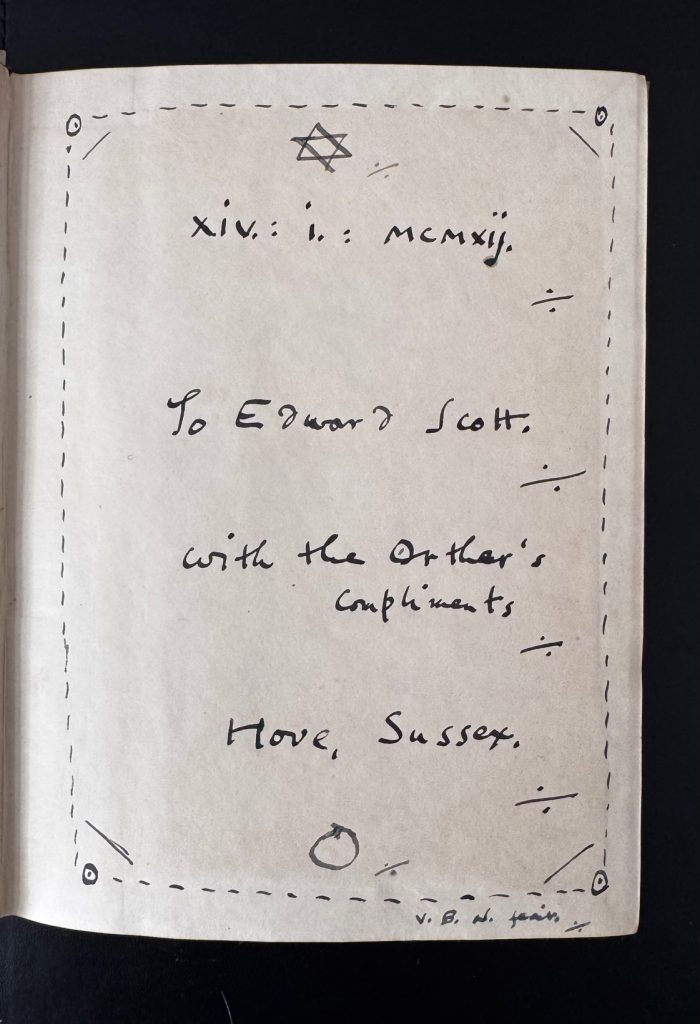 xiv. : i. : MCMXIJ.
To Edward Scott.
with the Orther's
compliments
Hove, Sussex.
V. B. N.